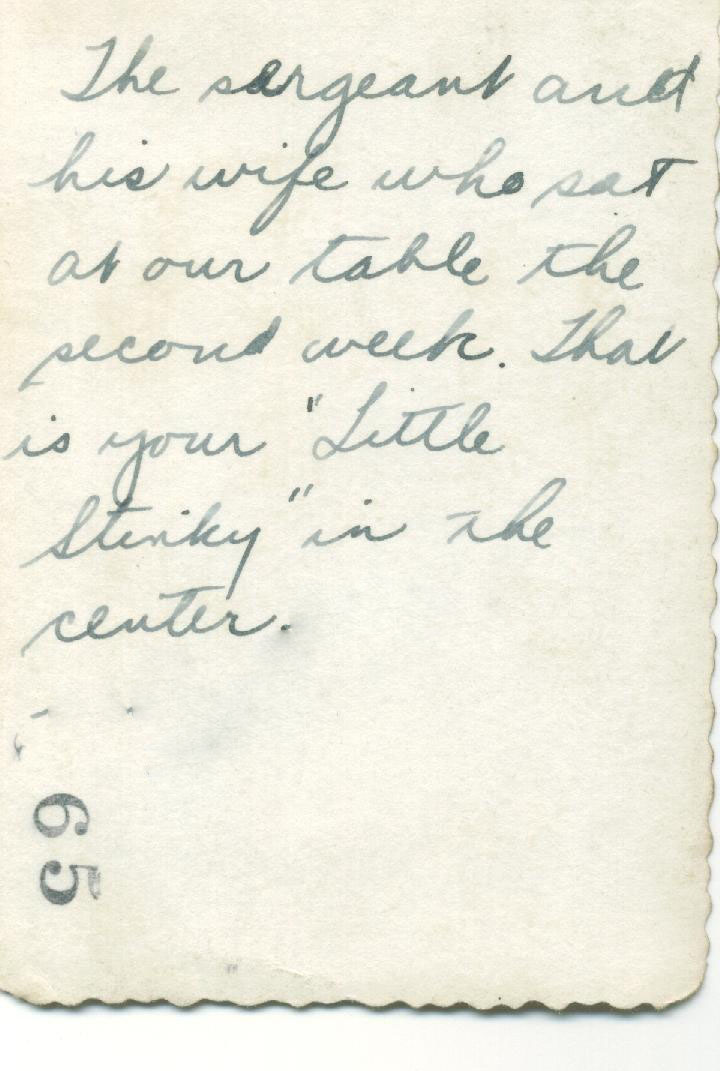 The sergeant and
his wife who sat
at our table the
second week. That
is your "Little
Stinky" in the
center.
65